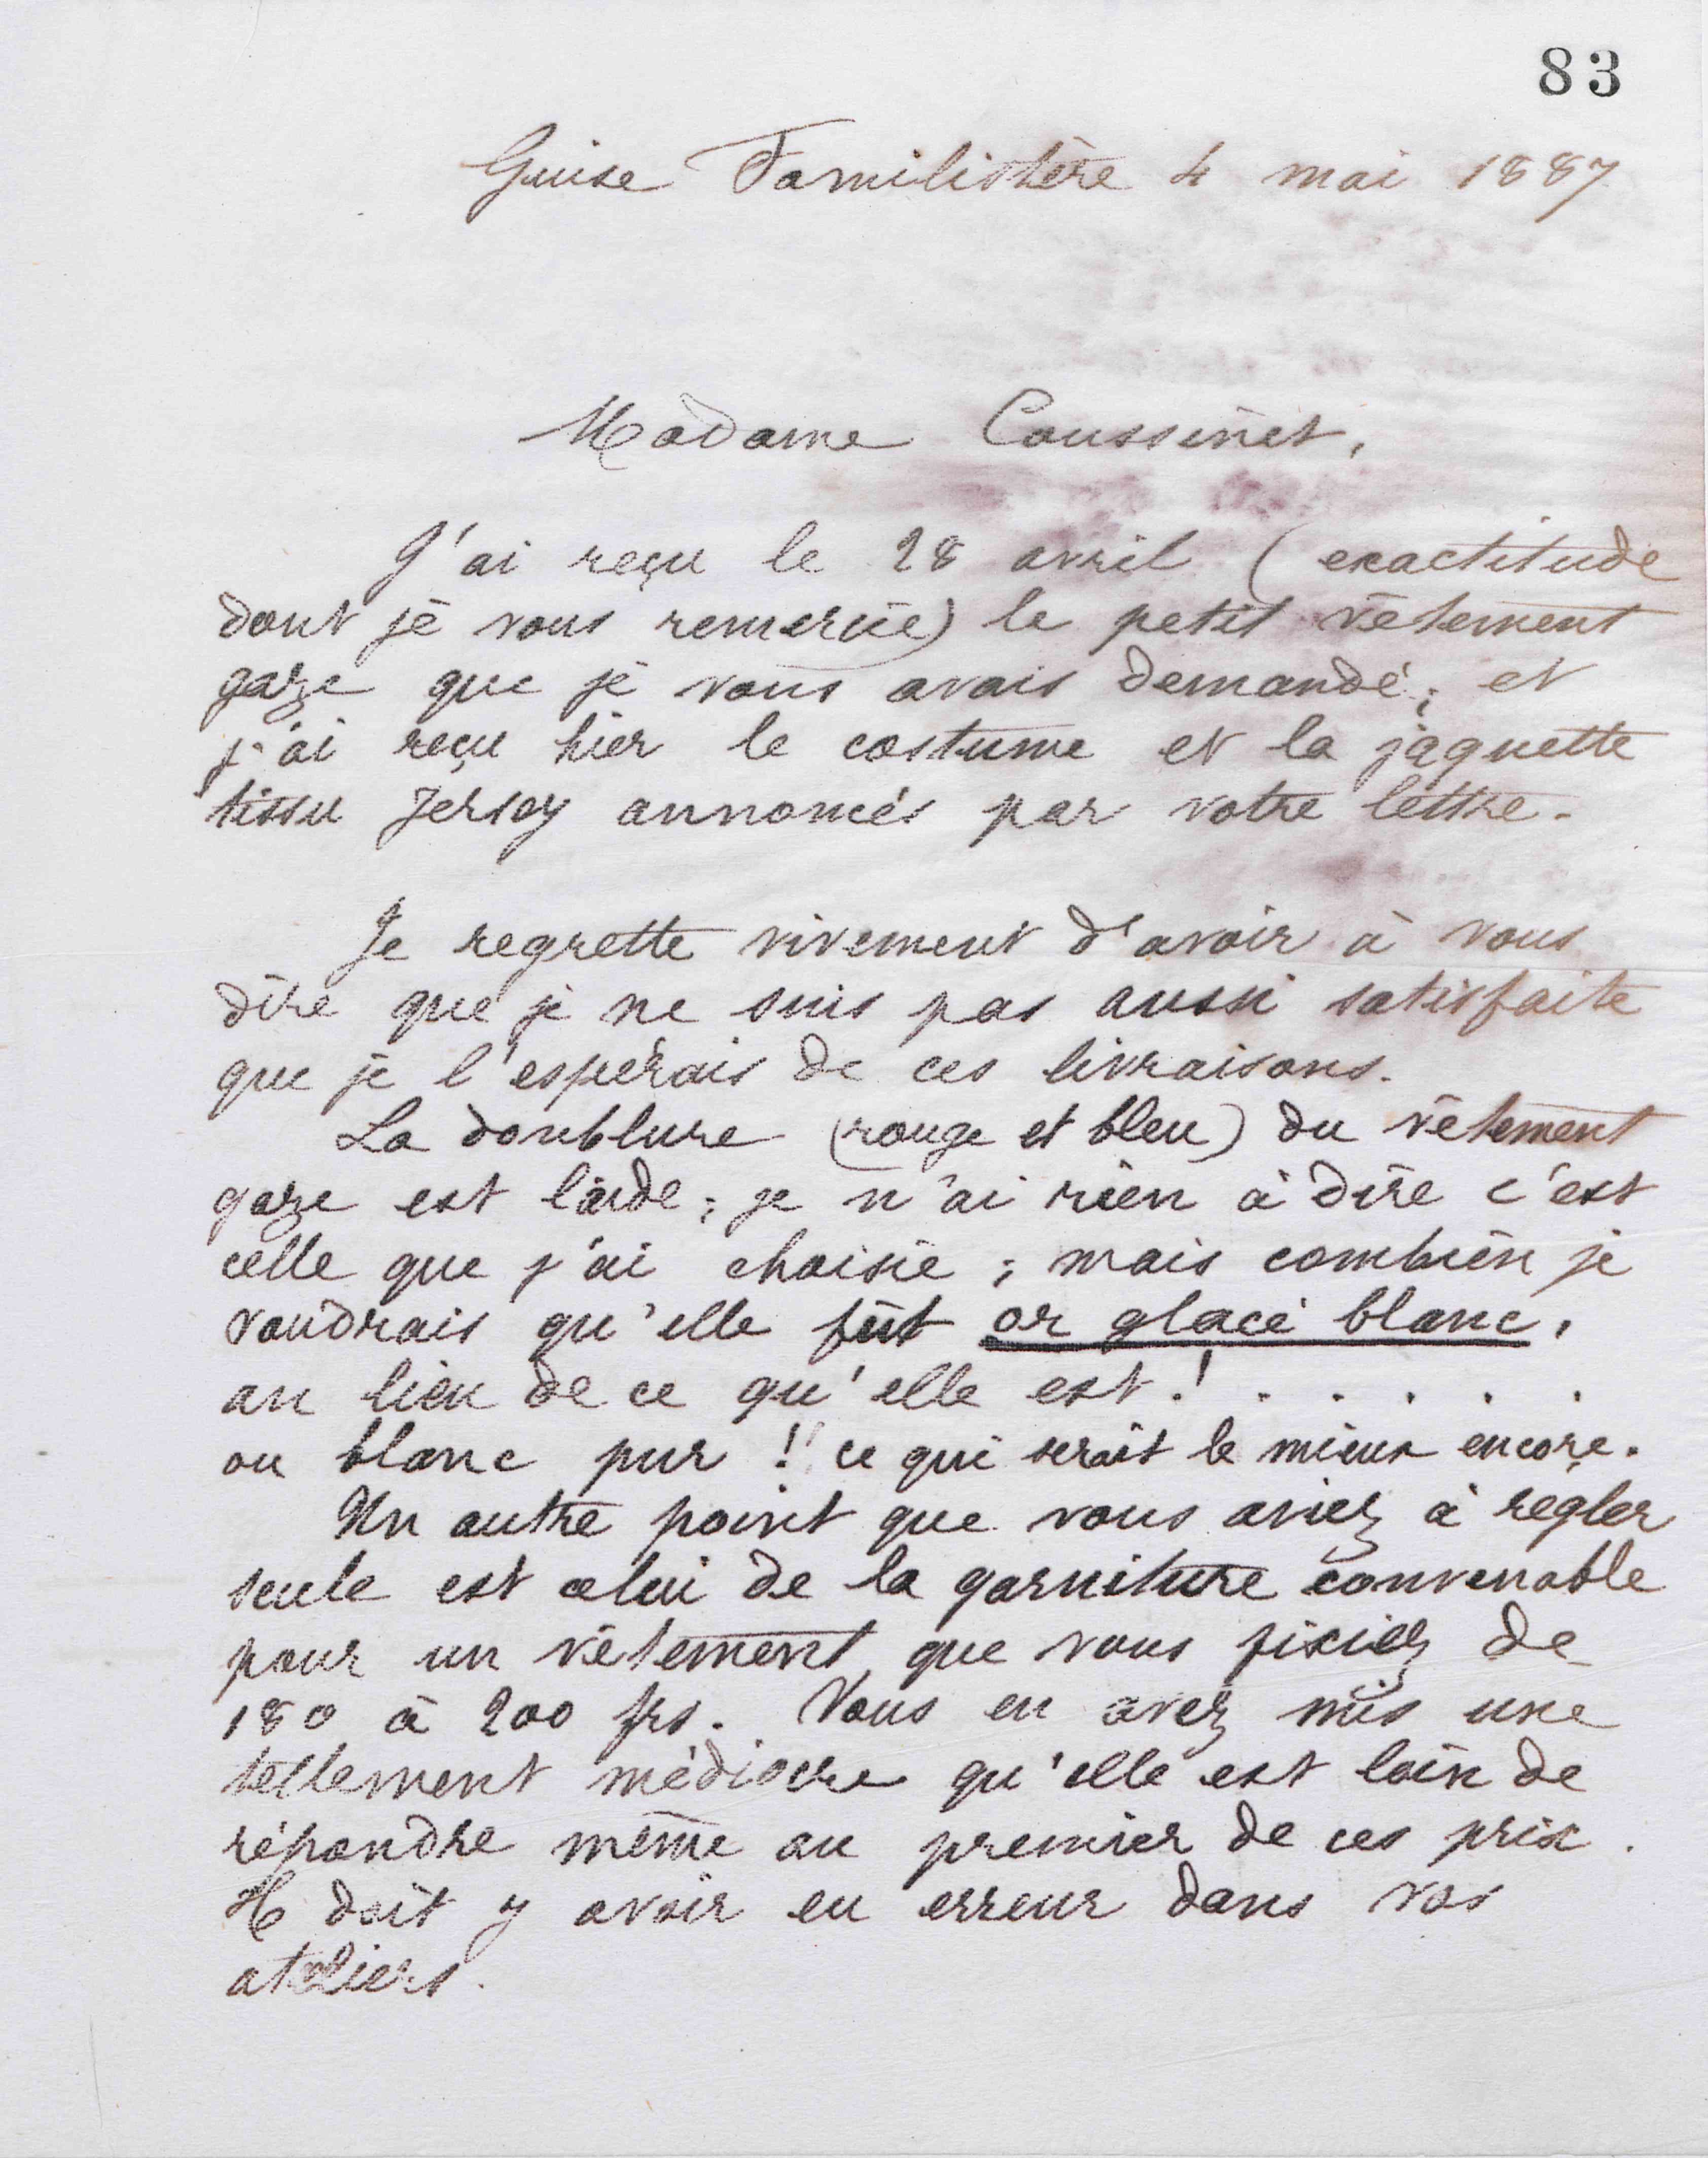 83
Guise Familistère 4 mai 1887
Madame Coussinet,
J'ai reçu le 28 avril (exactitude
dont je vous remercie) le petit vêtement
gaze que je vous avais demandé ; et
j'ai reçu hier le costume et la jaquette
tissu Jersey annoncés par votre lettre.
Je regrette vivement d'avoir à vous
dire que je ne suis pas aussi satisfaite
que je l'espérais de ces livraisons.
La doublure (rouge et bleu) du vêtement
gaze est laide ; je n'ai rien à dire c'est
celle que j'ai choisie ; mais combien je
voudrais qu'elle fût or glacé blanc,
au lieu de ce qu'elle est ! . . . . . .
ou blanc pur ! ce qui serait le mieux encore.
Un autre point que vous aviez à régler
seule est celui de la garniture convenable
pour un vêtement que vous fixiez de
180 à 200 frs. Vous en avez mis une
tellement médiocre qu'elle est loin de
répondre même au premier de ces prix.
Il doit y avoir eu erreur dans vos
ateliers.